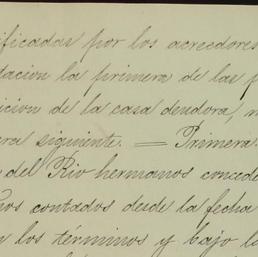 ificadas por los acreedores
tacion la primera de las p
icion de la casa deudora, 
era siguiente. = Primera.
del Rio hermanos concede
ños contados desde la fecha
n los términos y bajo la